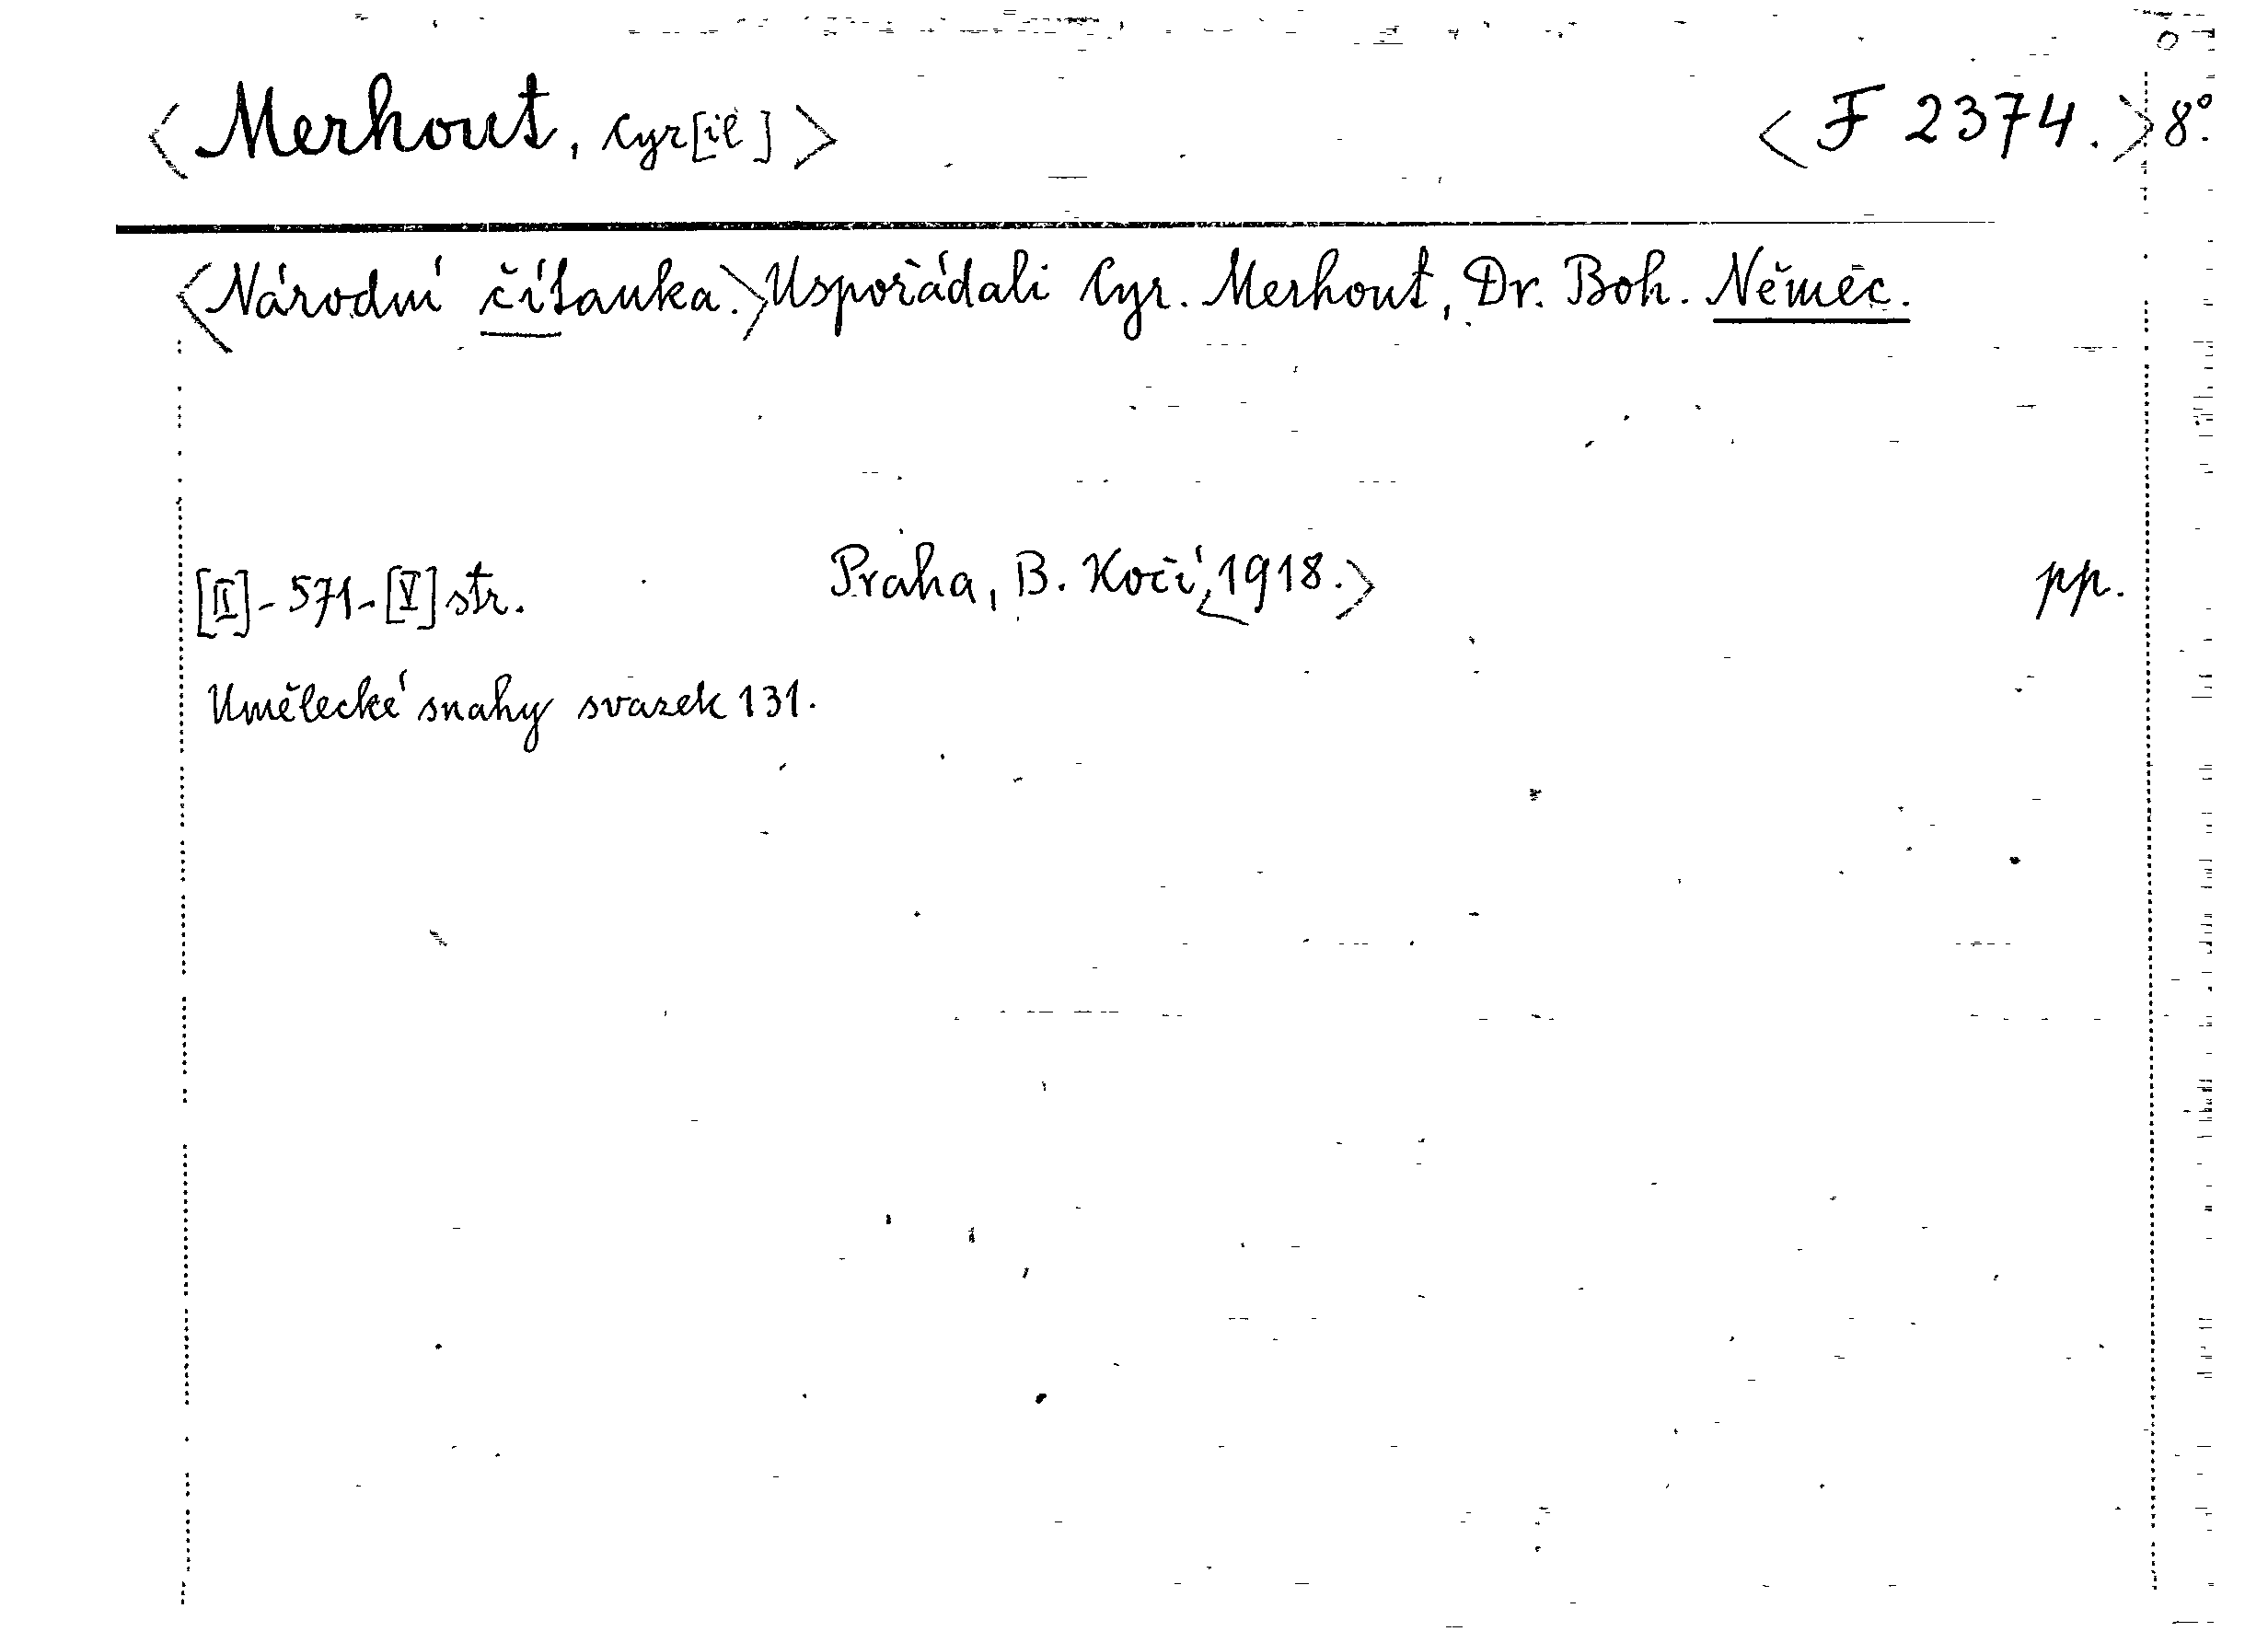 <Merhout, Cyr[il]> <F 2374.> 8°.
<Národní čítanka.> Uspořádali Cyr. Merhout, Dr. Boh. Němec.
[II]-571-[V] str. Praha, B. Kočí, <1918.> pp.
Umělecké snahy svazek 131.